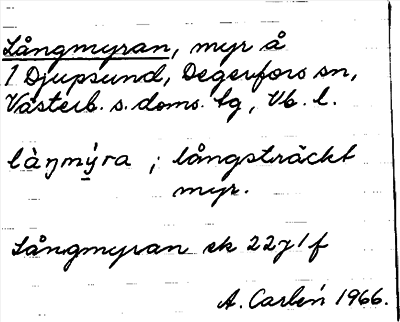 Långmyran, myr å
1 Djupsund, Degerfors sn,
Västerb. s. doms. tg, Vb. l.
là̀ŋmý̱ra ; långsträckt
myr.
Långmyran ek 22J1f
A. Carlén 1966.